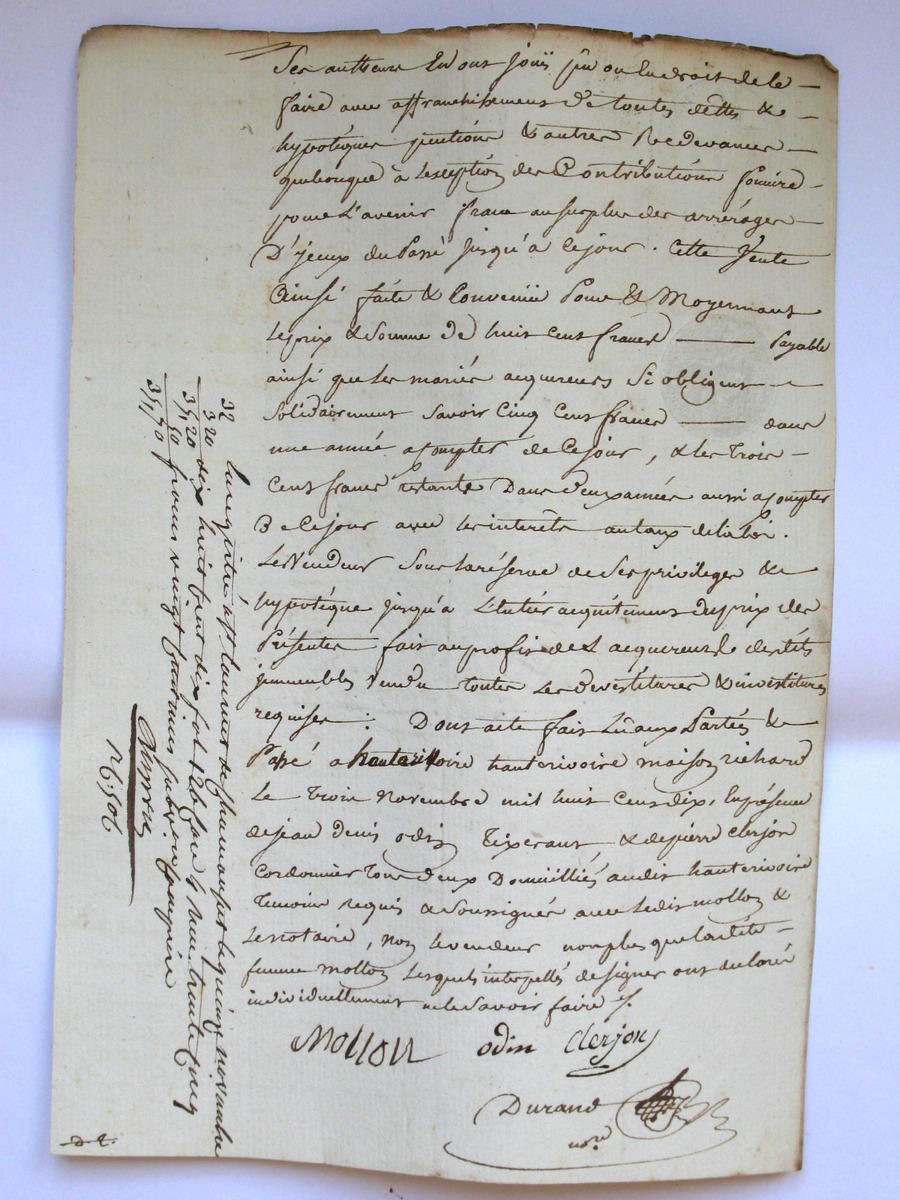 Ses autheurs En ont joüi pû ou Eu droit de le
faire avec affranchissement de toutes dettes &
hypotéques pentions & autres Redevances
quelconque à L'exception des Contributions fonciere
pour L'avenir franc au surplus des arrérages
D'jceux du Passé jusqu'à ce jour. Cette Vente
Ainsi faite & Convenüe Pour & Moyennant
Le prix & Somme de huit cens francs payable
ainsi que les mariés acquereurs S'i obligent
Solidairement Savoir Cinq Cens francs dans
une année a Compter de Ce jour, & les trois
Cens francs restants Dans deux années aussi a Compter
De Ce jour avec les interêts au taux de la Loi.
Le Vendeur Sous la réserve de Ses privileges &
hypotéque jusqu'à L'entier acquitement du prix des
Présentes fait au profit des acquereurs de desdits
jmmeubles Vendu toutes les devestitures & investitures
requises : Dont acte fait Lû aux Parties &
Passé a hauterivoire maison richard
Le Trois Novembre mil huit Cens dix, En présence
de jean denis odin Tixerant & de pierre Clerjon
Cordonnier Tous deux Domiciliés audit hauterivoire
Temoins requis & Soussignés avec Ledit mollon &
Le notaire, non le vendeur non plus que laditte
femme mollon Lesquels interpellés de signer ont declaré
individuellement ne le Savoir faire /.
Mollon odin Clerjon
Durand
nore
D. L.
32
3 20
35,20
50
35,70
Enregistré à St Laurent de Chamousset le quinze novembre
dix huit cent dix fol 126 Case 4 Reçu trente cinq
francs vingt centimes
16:506